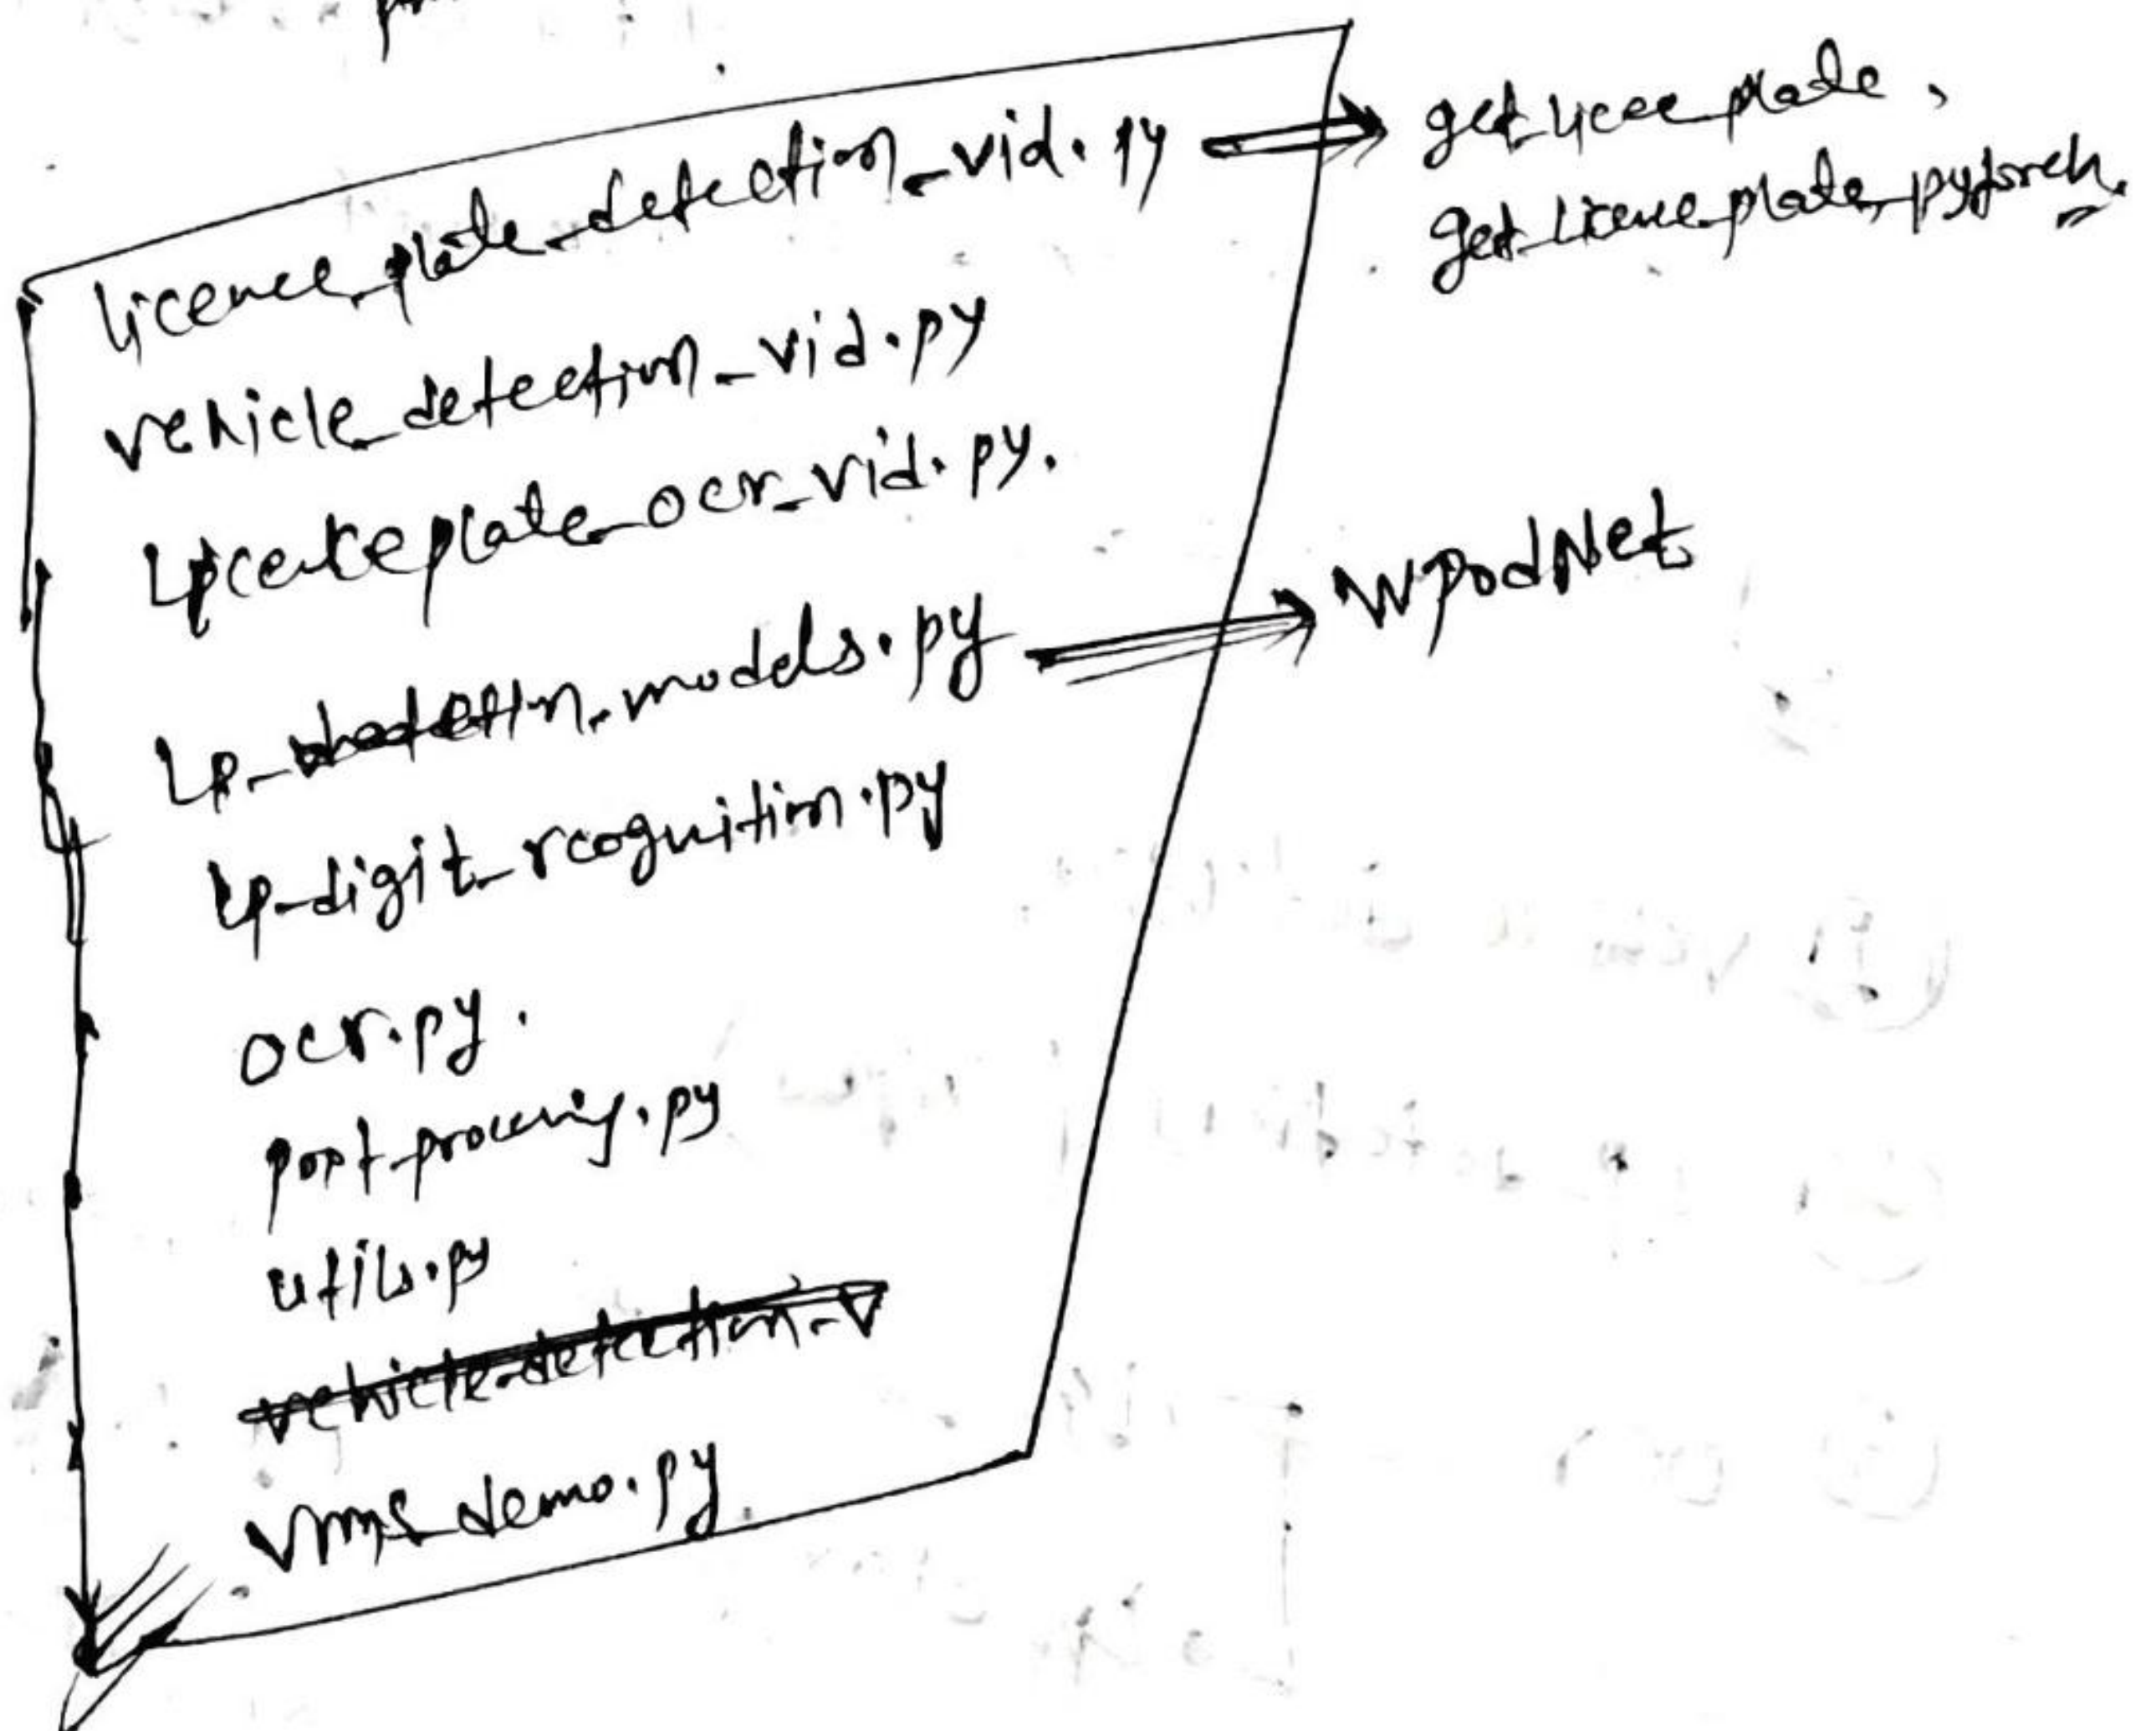 licence_plate_detection_vid.py ⇒ get_licee_plate,
get_licence_plate_pytorch.
vehicle_detection_vid.py
Licenceplate_ocr_vid.py.
LP_detettn_models.py ⇒ WPodNet
LP_digit_rcognuition.py
ocr.py.
post_processing.py
utils.py
vehicle_detection_v
vms_demo.py